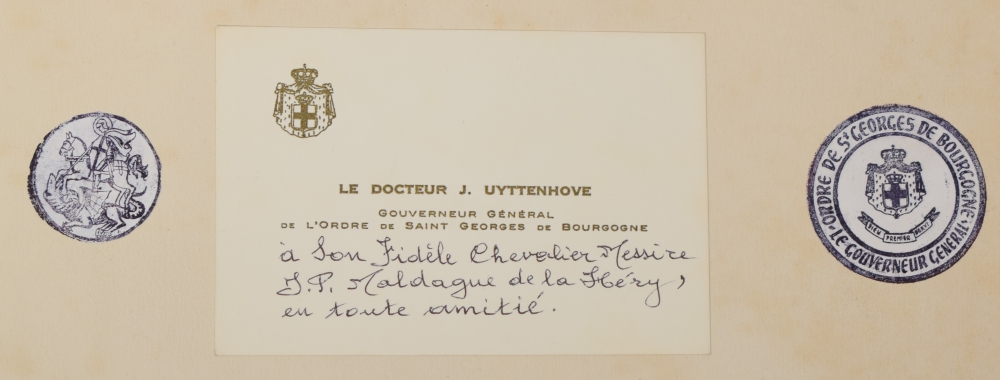 LE DOCTEUR J. UYTTENHOVE
GOUVERNEUR GÉNÉRAL
DE L'ORDRE DE SAINT GEORGES DE BOURGOGNE
à Son Fidèle Chevalier Messire
J.P. Maldague de la Héry,
en toute amitié.
ORDRE DE St GEORGES DE BOURGOGNE
LE GOUVERNEUR GÉNÉRAL
DIEU PREMIER SERVI